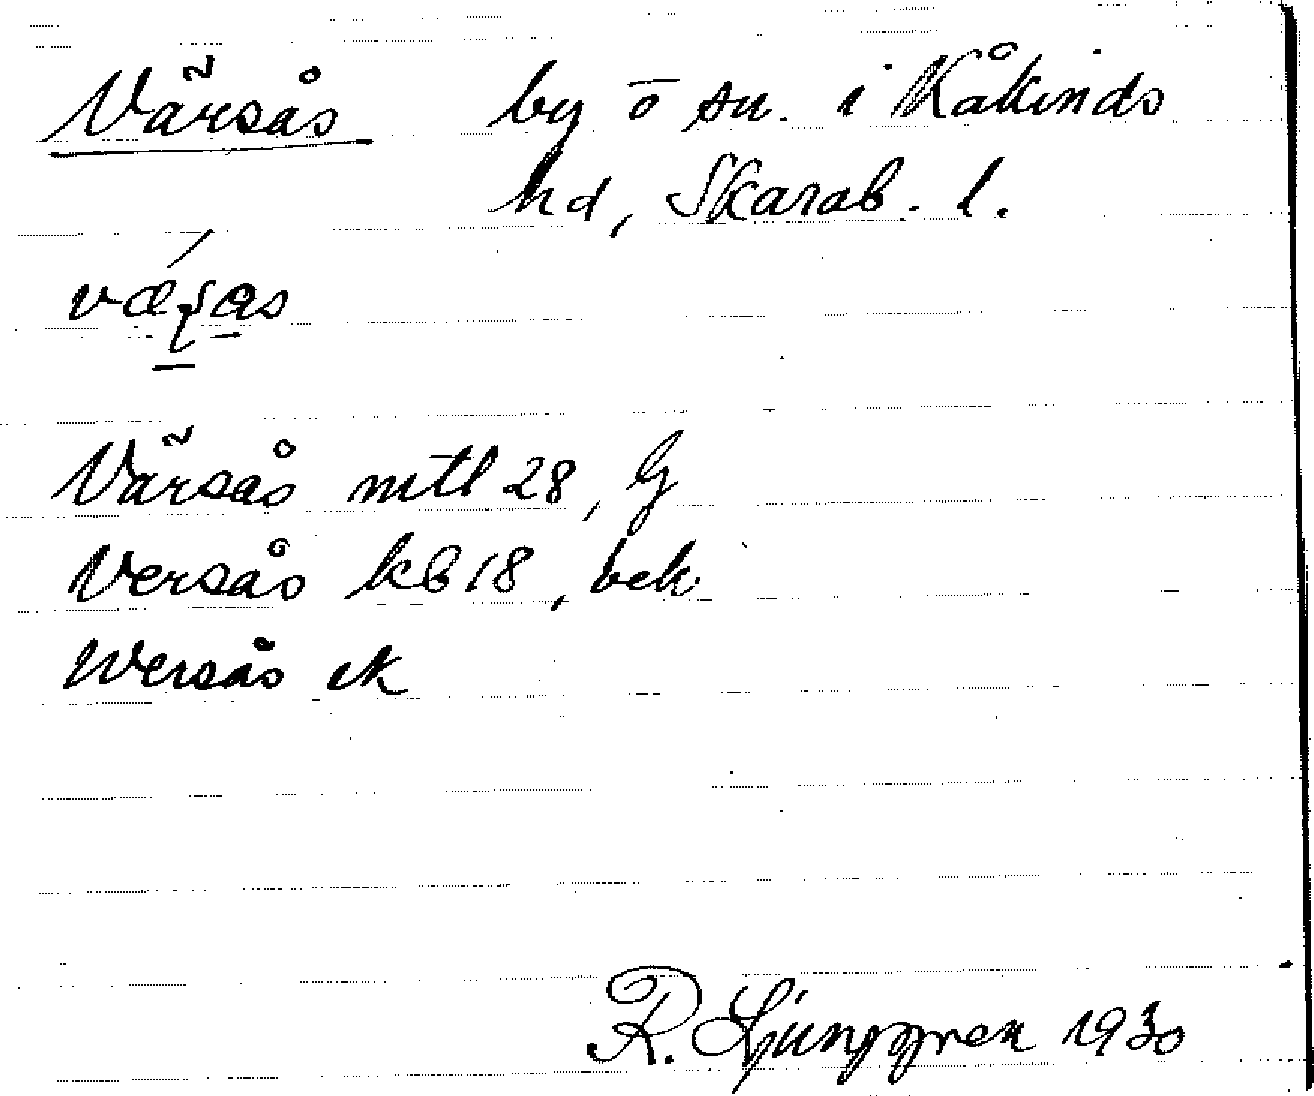 Värsås by ö sn. i Kåkinds
hd, Skarab. l.
Värsås mtl 28, G
Versås kb 18, bek
Wersås ek
R. Ljunggren 1930